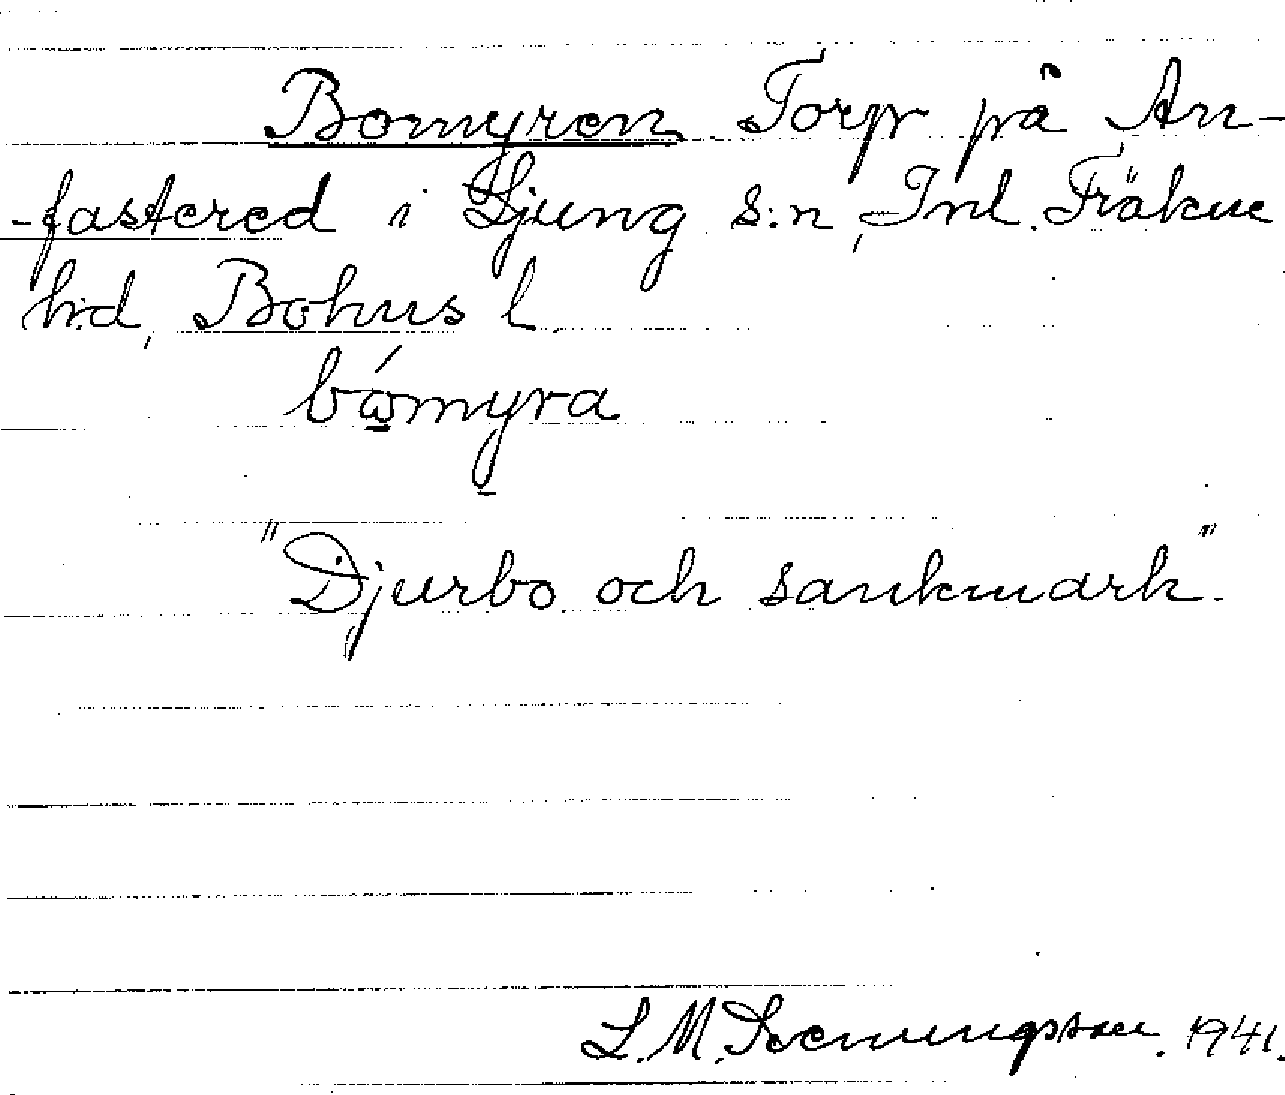 Bomyren Torp på An-
-fastered i Ljung s:n, Inl. Fräkne
h:d, Bohus l
bómyra
"Djurbo och sankmark".
L. M. 1941.